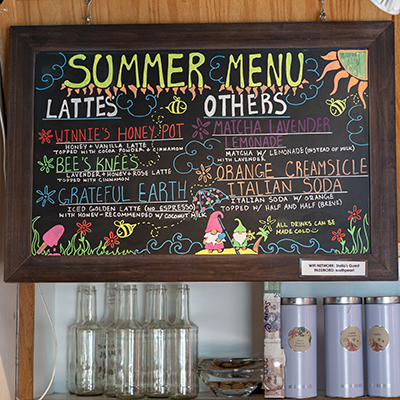 SUMMER MENU
LATTES
WINNIE'S HONEY POT
HONEY + VANILLA LATTE
TOPPED WITH COCOA POWDER + CINNAMON
BEE'S KNEES
LAVENDER + HONEY + ROSE LATTE
TOPPED WITH CINNAMON
GRATEFUL EARTH
ICED GOLDEN LATTE (NO ESPRESSO)
WITH HONEY - RECOMMENDED W/ COCONUT MILK
OTHERS
MATCHA LAVENDER
LEMONADE
MATCHA W/ LEMONADE (INSTEAD OF MILK)
WITH LAVENDER
ORANGE CREAMSICLE
ITALIAN SODA
ITALIAN SODA W/ ORANGE
TOPPED W/ HALF AND HALF (BREVE)
ALL DRINKS CAN BE
MADE COLD
WIFI NETWORK: Stella's Guest
PASSWORD: southpearl